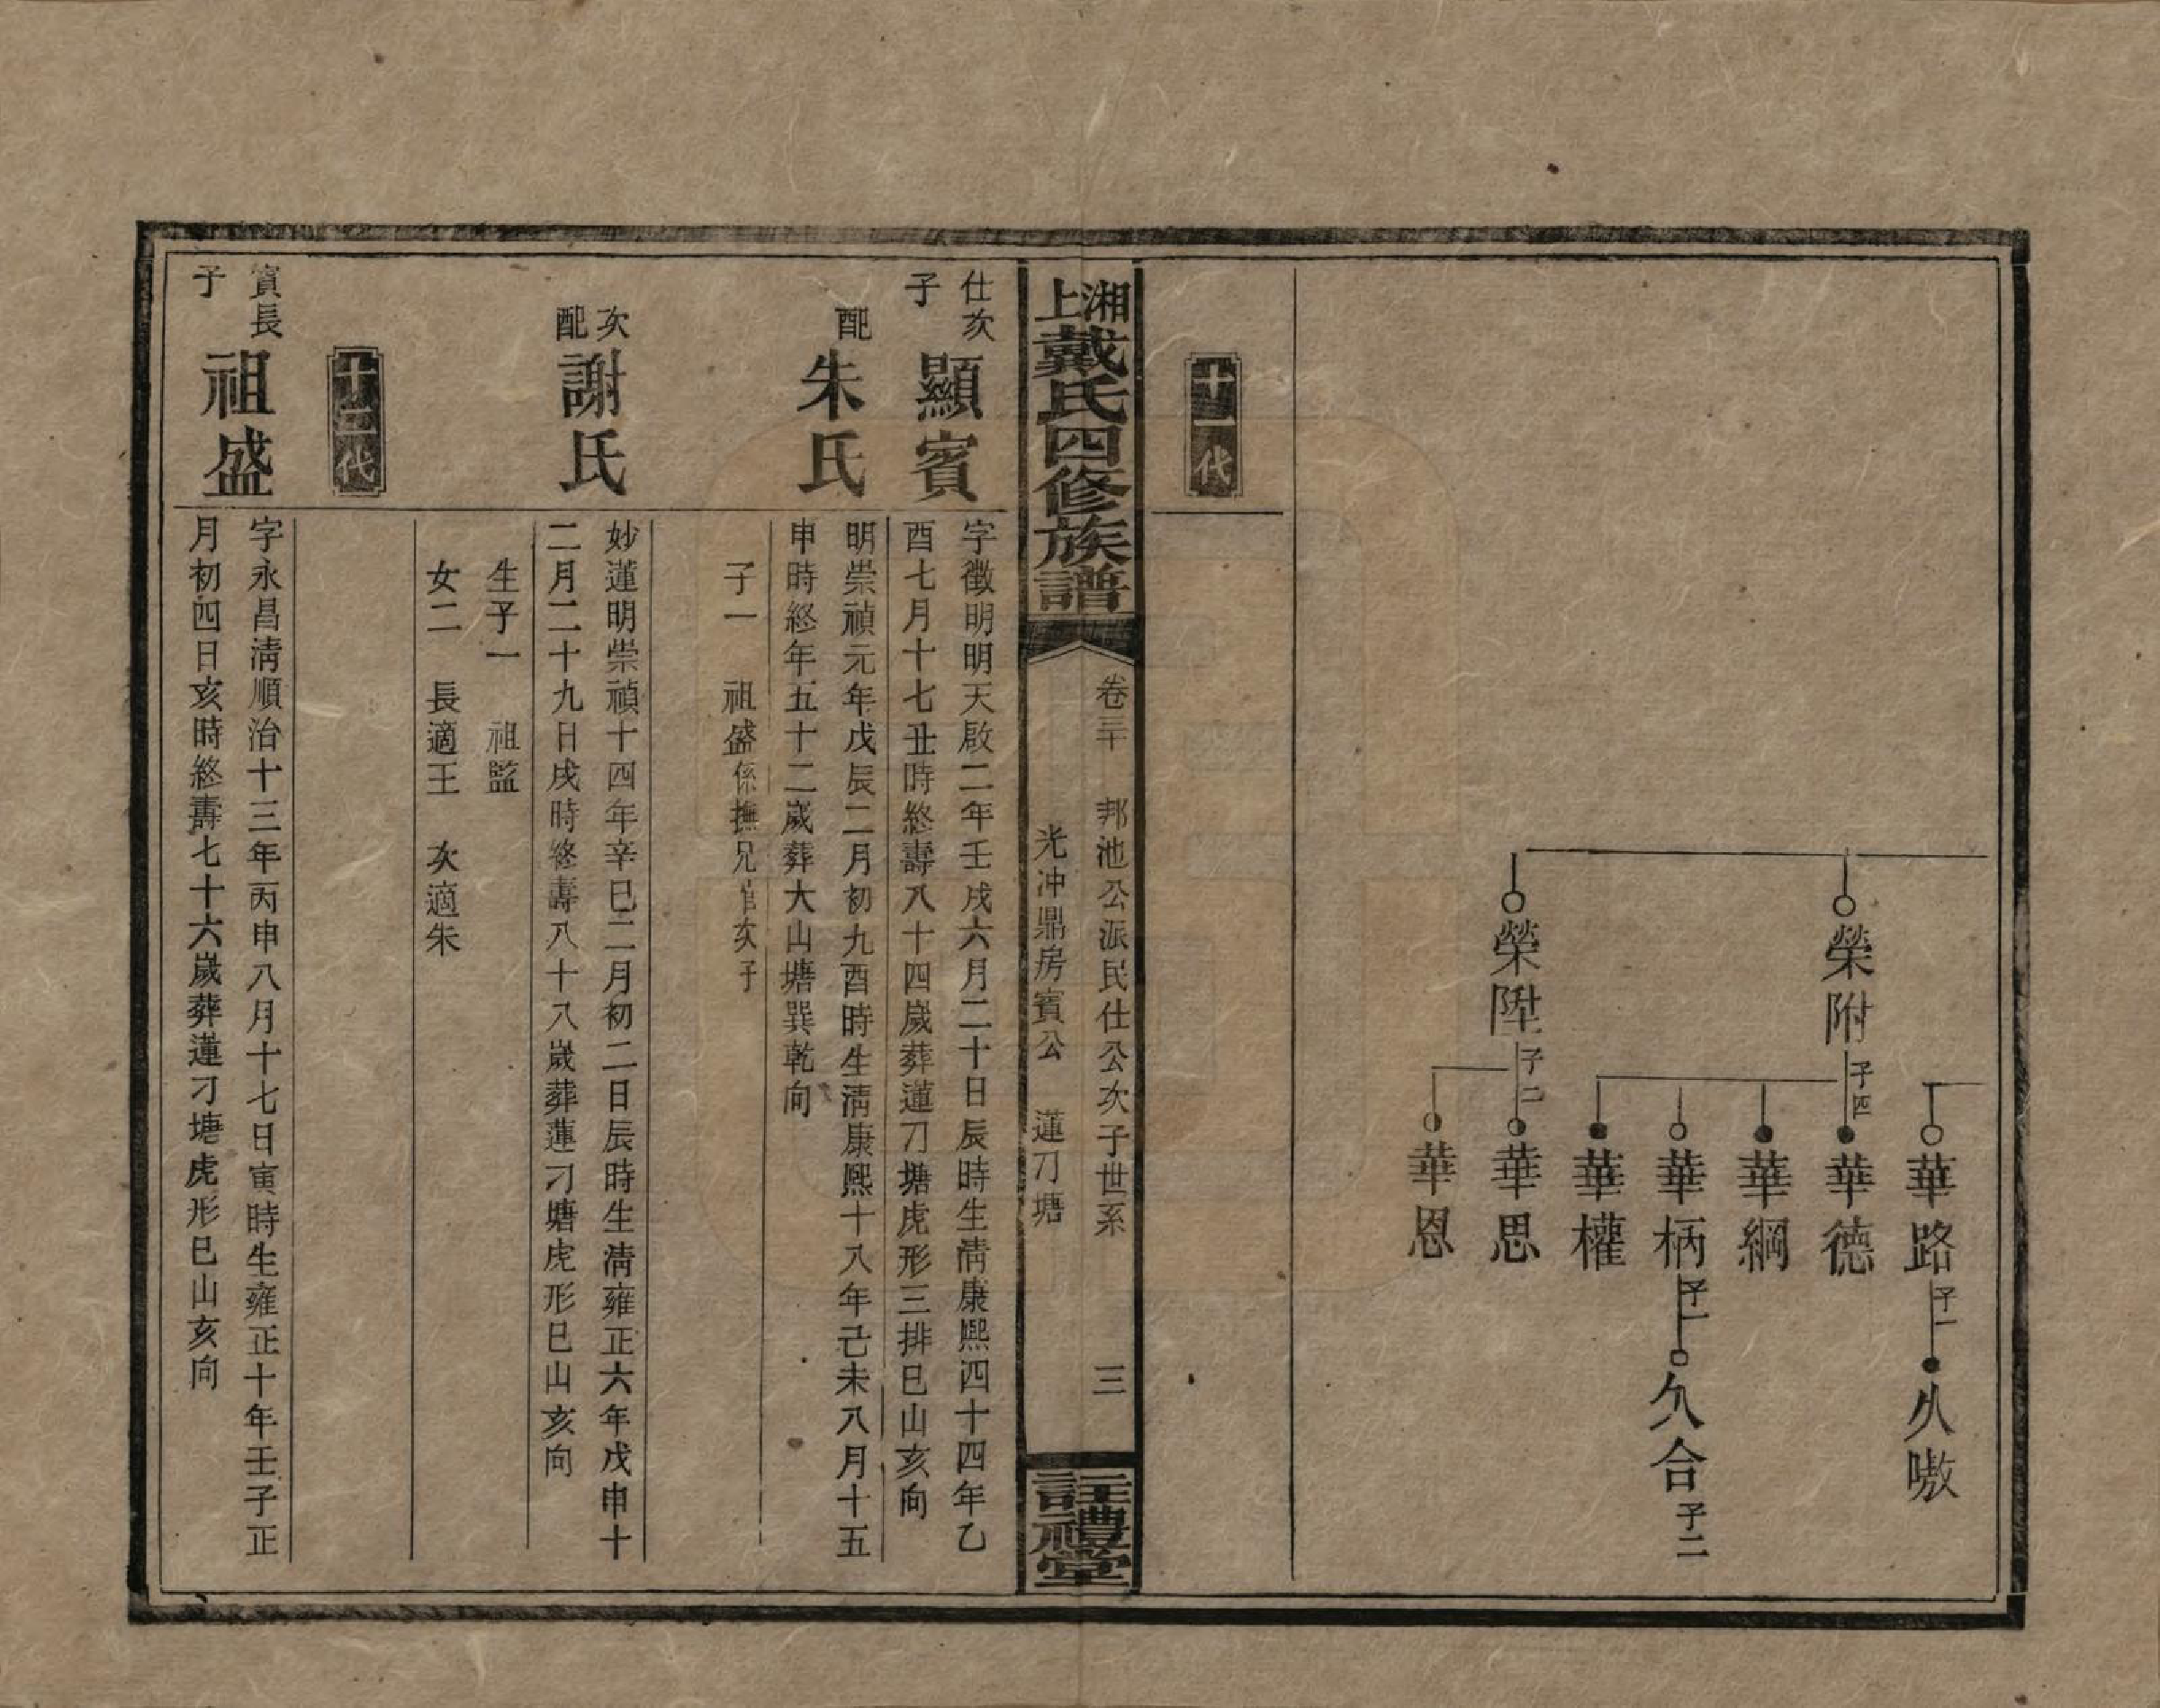 榮附 子四
榮陞 子二
華路 子一
華德
華綱
華柄 子一
華權
華思
華恩
久嗷
久合 子二
十一代
湘上戴氏四修族譜
卷三十 邦池公派民仕公次子世系 三
光冲鼎房賓公 蓮刀塘
註禮堂
仕次子
顯賓
字徵明明天啟二年壬戌六月二十日辰時生清康熙四十四年乙
酉七月十七丑時終壽八十四歲葬蓮刀塘虎形三排巳山亥向
配
朱氏
明崇禎元年戊辰二月初九酉時生清康熙十八年己未八月十五
申時終年五十二歲葬大山塘巽乾向
子一 祖盛係撫兄次子
次配
謝氏
妙蓮明崇禎十四年辛巳二月初二日辰時生清雍正六年戊申十
二月二十九日戌時終壽八十八歲葬蓮刁塘虎形巳山亥向
生子一 祖監
女二 長適王 次適朱
十二代
賓長子
祖盛
字永昌清順治十三年丙申八月十七日寅時生雍正十年壬子正
月初四日亥時終壽七十六歲葬蓮刁塘虎形巳山亥向